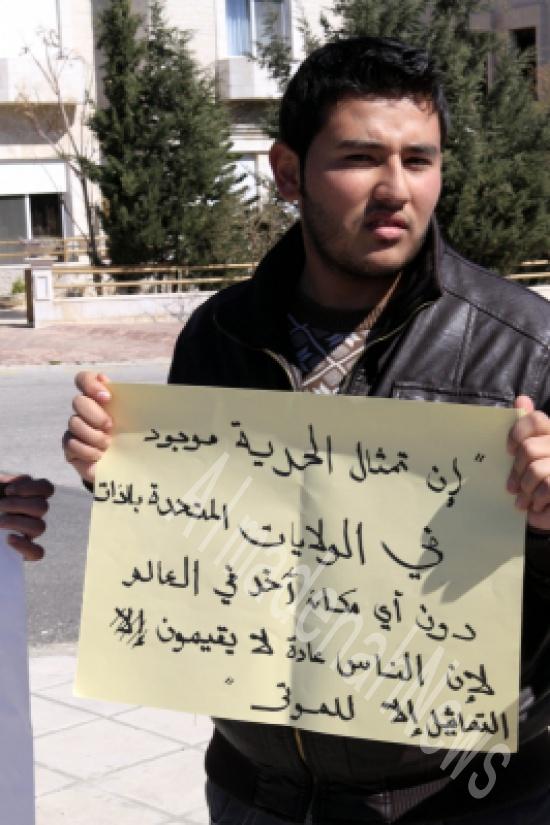 " إن تمثال الحرية موجود
في الولايات المتحدة بالذات
دون أي مكان آخر في العالم
لإن الناس عادة لا يقيمون إلا
التماثيل إلا للموتى "
Almadenah News